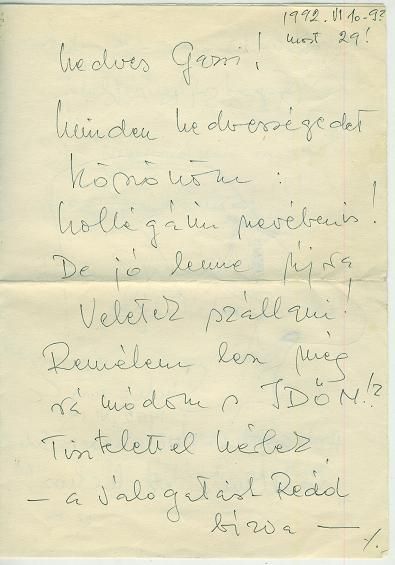 1992. VI 10-9?
most 29!
Kedves Gaszi!
Minden kedvességedet
köszönöm :
kollégáim nevében is!
De jó lenne újra
Veletek szállani!
Remélem lesz még
rá módom s IDŐM!?
Tisztelettel kérlek,
– a válogatást Reád
bízva –
./.